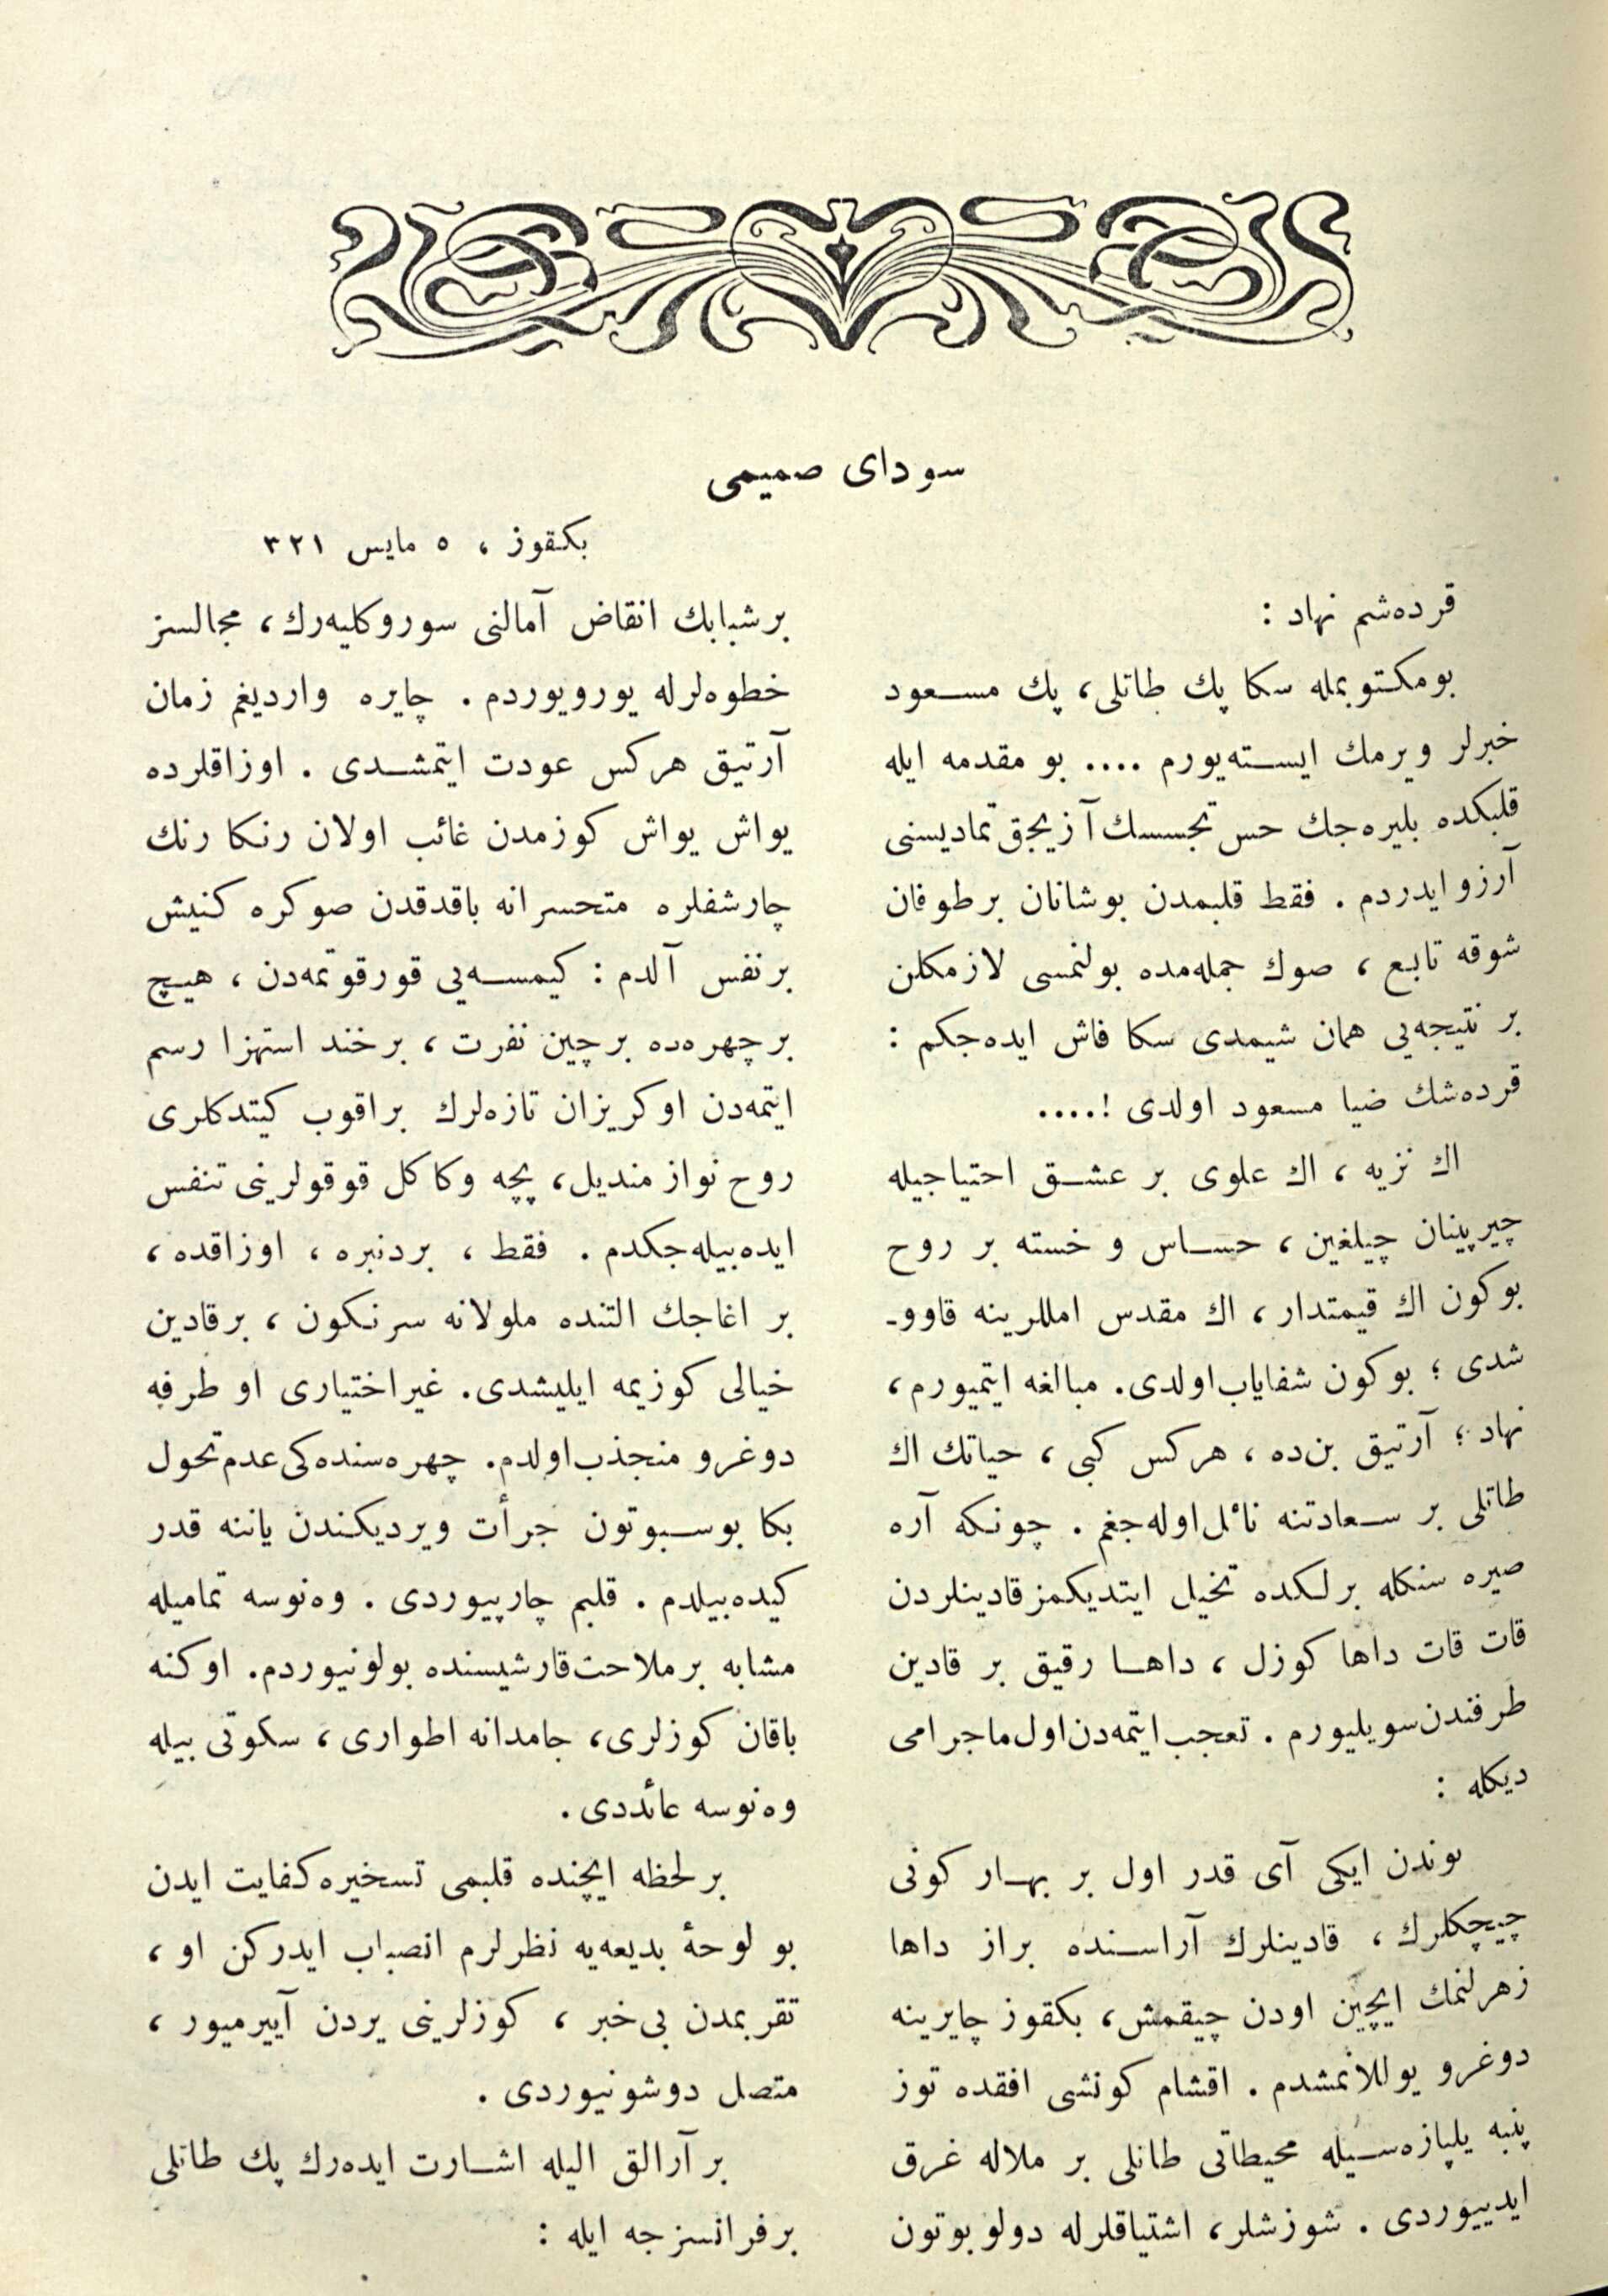 سودای صمیمی
بكقوز ، ٥ مایس ٣٢١
قرده‌شم نهاد :
بومكتوبمله سكا پك طاتلی، پك مسعود
خبرلر ویرمك ایسته‌یورم .... بو مقدمه ایله
قلبكده بلیره‌جك حس تجسسك آزیجق تمادیسنی
آرزو ایدردم . فقط قلبمدن بوشانان برطوفان
شوقه تابع ، صوك جمله‌مده بولنمسی لازمكلن
بر نتیجه‌یی همان شیمدی سكا فاش ایده‌جكم :
قرده‌شك ضیا مسعود اولدی !....
اك نزیه ، اك علوی بر عشق احتیاجیله
چیرپینان چیلغین ، حساس و خسته بر روح
بوكون اك قیمتدار ، اك مقدس امللرینه قاوو-
شدی ؛ بوكون شفایاب‌اولدی. مبالغه ایتمیورم ،
نهاد ؛ آرتیق بن‌ده ، هركس كبی ، حیاتك اك
طاتلی بر سعادتنه نائل‌اوله‌جغم . چونكه آره
صیره سنكله برلكده تخیل ایتدیكمز قادینلردن
قات قات داها كوزل ، داها رقیق بر قادین
طرفندن‌سویلیورم . تعجب‌ایتمه‌دن‌اول‌ماجرامی
دیكله :
بوندن ایكی آی قدر اول بر بهار كونی
چیچكلرك ، قادینلرك آراسنده براز داها
زهرلنمك ایچین اودن چیقمش، بكقوز چایرینه
دوغرو یوللانمشدم . اقشام كونشی افقده توز
پنبه یلپازه‌سیله محیطاتی طاتلی بر ملاله غرق
ایدییوردی . شوزشلر، اشتیاقلرله دولو بوتون
برشبابك انقاض آمالنی سوروكلیه‌رك، مجالسز
خطوه‌لرله یورویوردم . چایره واردیغم زمان
آرتیق هركس عودت ایتمشدی . اوزاقلرده
یواش یواش كوزمدن غائب اولان رنكا رنك
چارشفلره متحسرانه باقدقدن صوكره كنیش
برنفس آلدم : كیمسه‌یی قورقوتمه‌دن ، هیچ
برچهره‌ده برچین نفرت ، برخند استهزا رسم
ایتمه‌دن اوكریزان تازه‌لرك براقوب كیتدكلری
روح نواز مندیل، پچه وكاكل قوقولرینی تنفس
ایده‌بیله‌جكدم . فقط ، بردنبره ، اوزاقده ،
بر اغاجك التنده ملولانه سرنكون ، برقادین
خیالی كوزیمه ایلیشدی. غیراختیاری او طرفه
دوغرو منجذب‌اولدم. چهره‌سنده‌كی عدم‌تحول
بكا بوسبوتون جرأت ویردیكندن یاننه قدر
كیده‌بیلدم . قلبم چارپییوردی . وه‌نوسه تمامیله
مشابه برملاحت‌قارشیسنده بولونیوردم. اوكنه
باقان كوزلری، جامدانه اطواری ، سكوتی بیله
وه‌نوسه عائددی .
برلحظه ایچنده قلبمی تسخیره‌كفایت ایدن
بو لوحهٔ بدیعه‌یه نظرلرم انصباب ایدركن او ،
تقربمدن بی‌خبر ، كوزلرینی یردن آییرمیور ،
متصل دوشونیوردی .
برآرالق الیله اشارت ایده‌رك پك طاتلی
برفرانسزجه ایله :